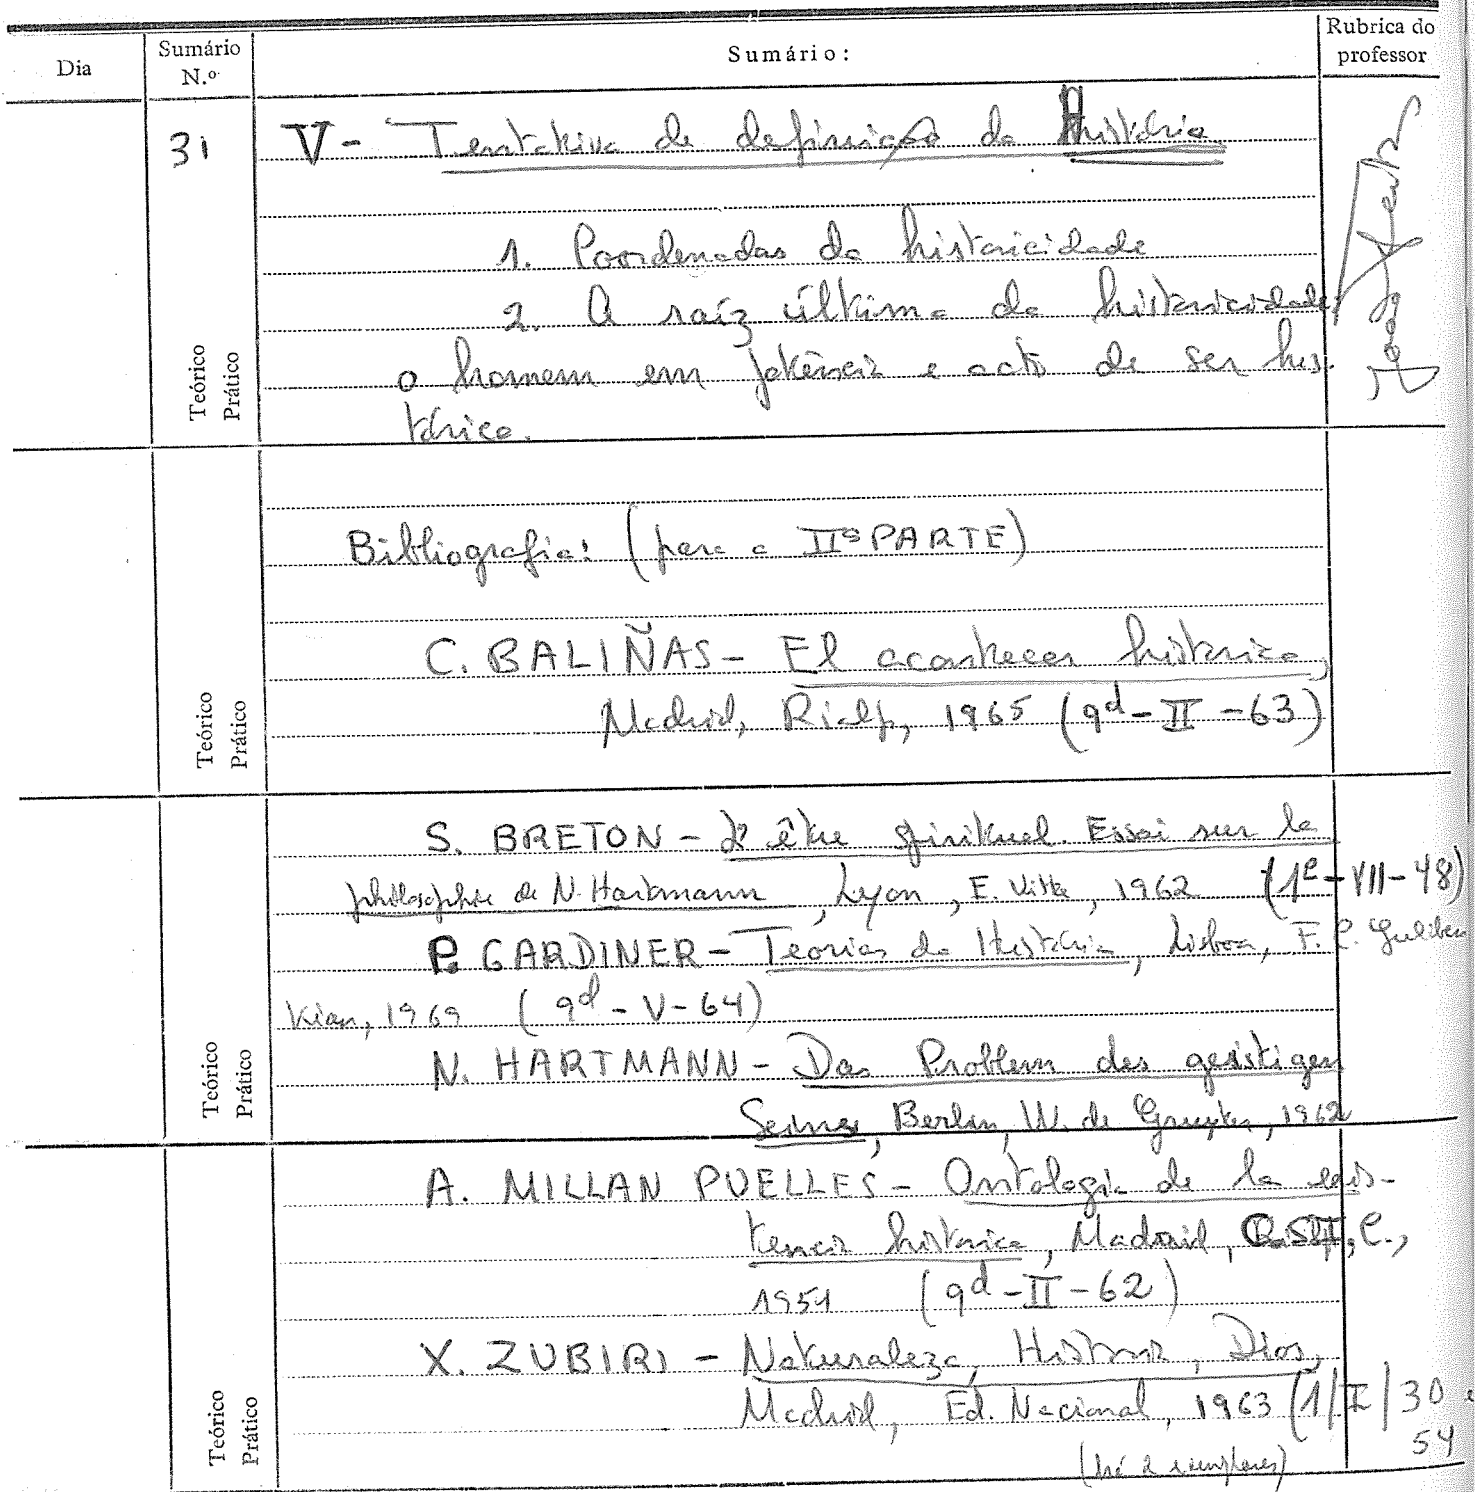 Dia
Sumário N.º
Sumário:
Rubrica do professor
31
V - Tentativa de definição da História
1. Coordenadas da historicidade
2. A raíz última da historicidade:
o homem em potência e acto de ser his-
tórico.
Teórico
Prático
Bibliografia: (para a IIª PARTE)
C. BALIÑAS - El acontecer historico,
Madrid, Rialp, 1965 (9d - II - 63)
Teórico
Prático
S. BRETON - L'être spirituel. Essai sur la
philosophie de N. Hartmann, Lyon, E. Vitte, 1962 (1e - VII - 48)
P. GARDINER - Teorias da História, Lisboa, F. C. Gulben
Kian, 1969 (9d - V - 64)
N. HARTMANN - Das Problem des geistigen
Seines, Berlin, W. de Gruyter, 1962
Teórico
Prático
A. MILLAN PUELLES - Ontologia de la exis-
tencia historica, Madrid, C.S.I.C.,
1951 (9d - II - 62)
X. ZUBIRI - Naturaleza, Historia, Dios,
Madrid, Ed. Nacional, 1963 (1/I/30 e
54
(há 2 exemplares)
Teórico
Prático